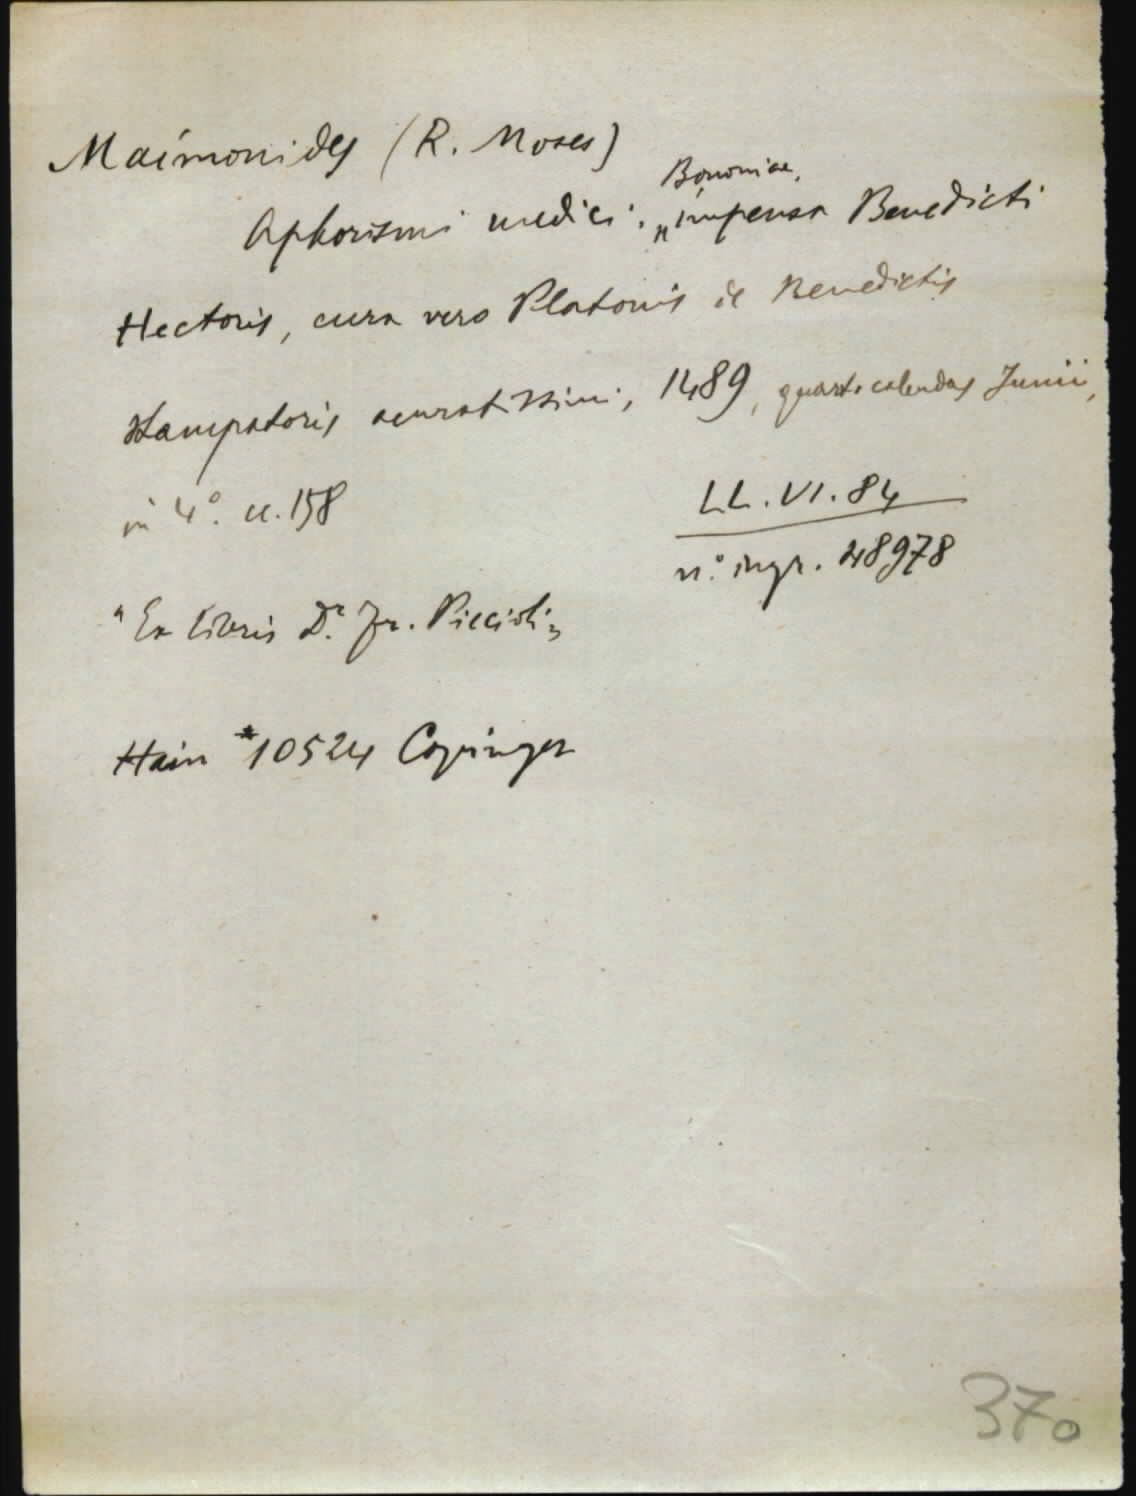 Maimonides (R. Moses)
Bononiae,
Aphorismi medici. „impensa Benedicti
Hectoris, cura vero Platonis de Benedictis
stampatoris acuratissimi, 1489, quarto calendas Junii,
in 4°. cc. 158
LL.VI.84
n.° ingr. 48978
"Ex libris Dr. Fr. Piccioli„
Hain *10524 Copinger
370